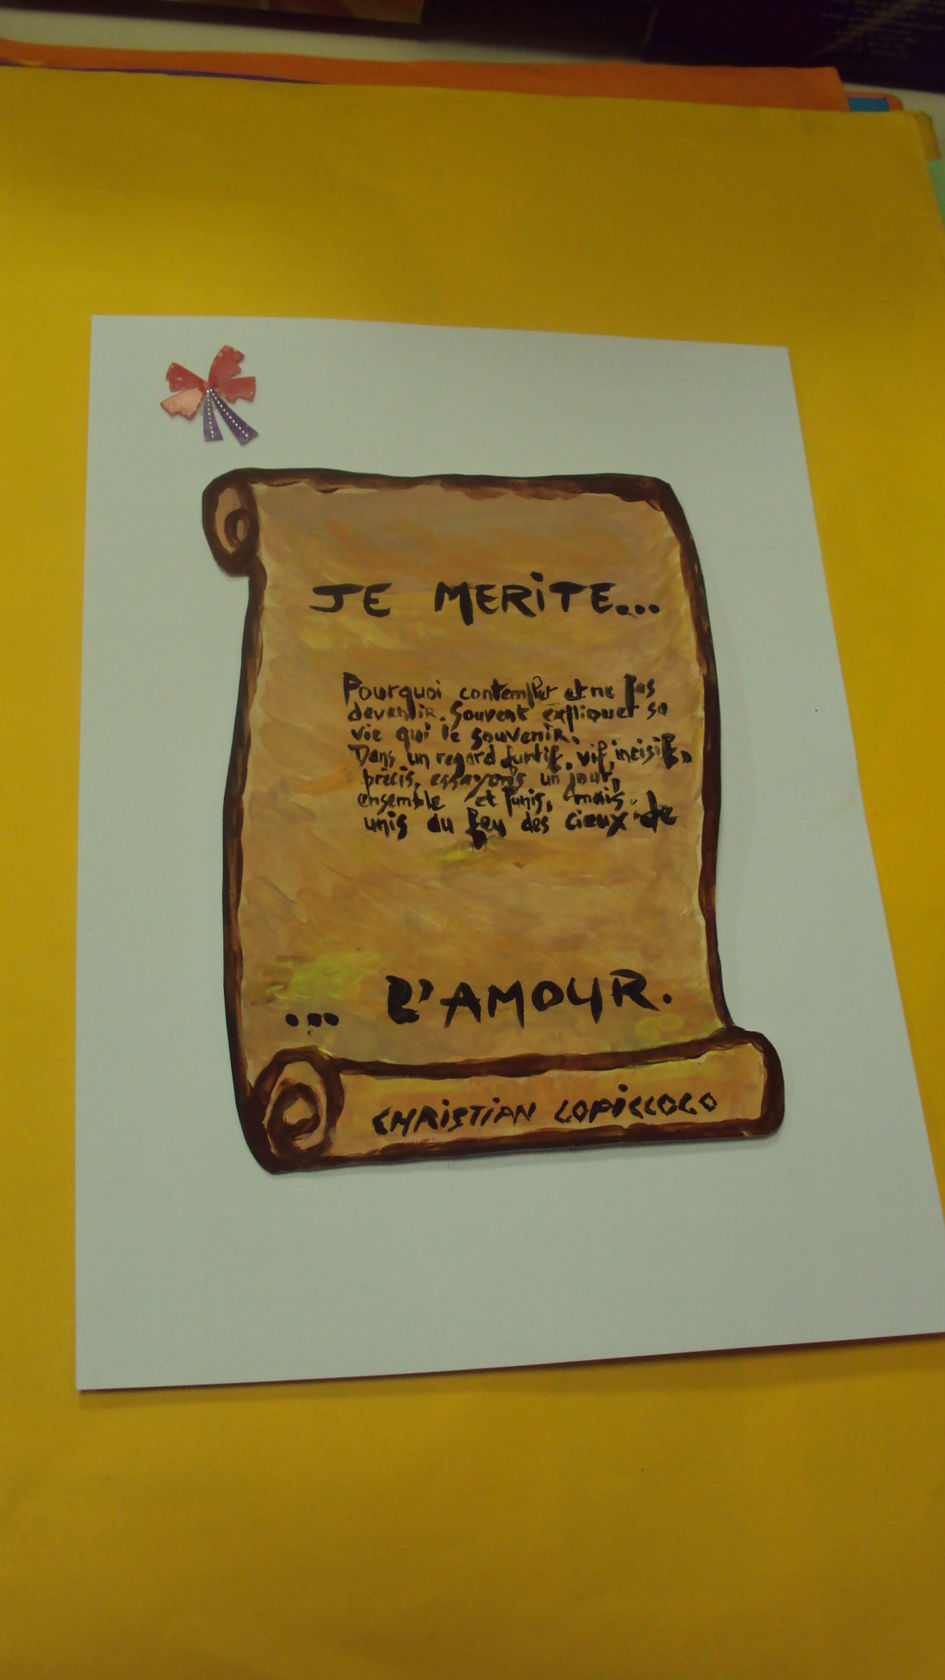 JE MERITE...
Pourquoi contempler et ne pas
devenir. Souvent expliquer sa
vie qui le souvenir.
Dans un regard furtif, vif, incisif,
précis, essayons un jour,
ensemble et punis, mais.
unis du feu des cieux de
... L'AMOUR.
CHRISTIAN LOPICCOLO